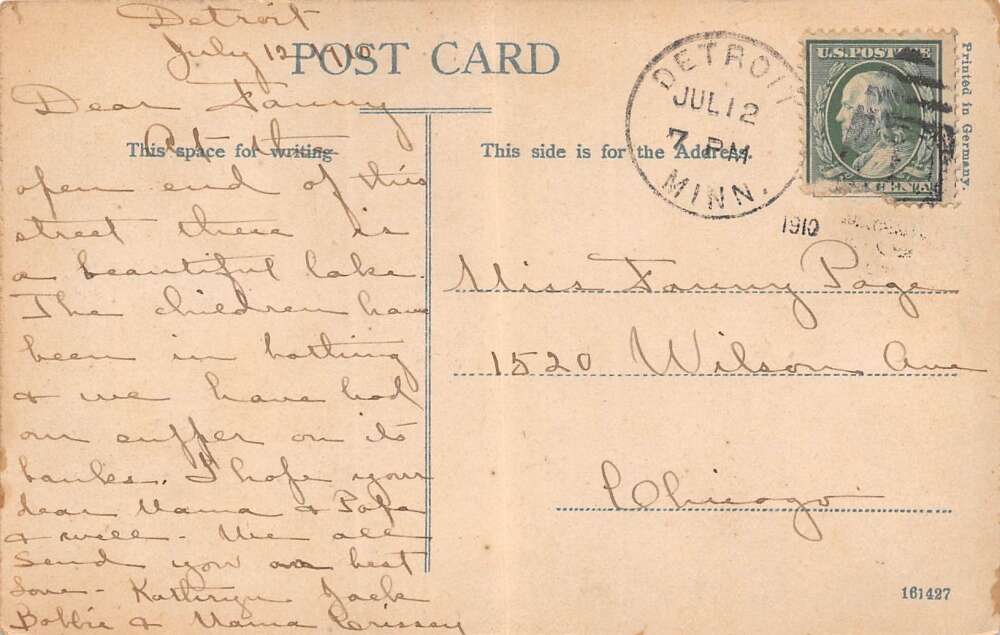 Detroit
July 12 1910
POST CARD
Dear Fanny
At the
This space for writing
open end of this
street there is
a beautiful lake.
The children have
been in bathing
& we have had
our supper on its
banks. I hope your
dear Mama & Papa
& well - We all
send you our best
love - Kathryn Jack
Bobbie & Mama Crissey
DETROIT
JUL 12
7 PM
MINN.
1910
U.S. POSTAGE
1 CENT 1
Printed in Germany.
This side is for the Address.
Miss Fanny Page
1520 Wilson Ave
Chicago
161427